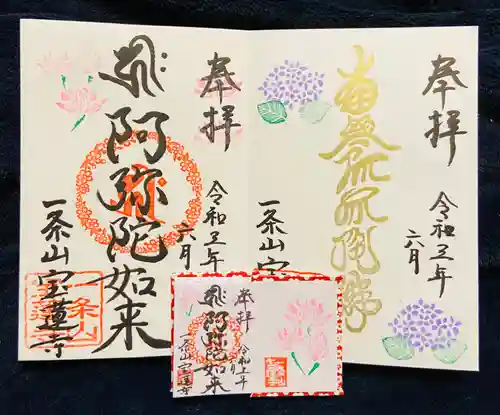 奉拝
令和三年
六月
南無阿弥陀佛
一条山
奉拝
令和三年
六月
阿弥陀如来
一条山 宝蓮寺
奉拝
令和三年
阿弥陀如来
一条山 宝蓮寺